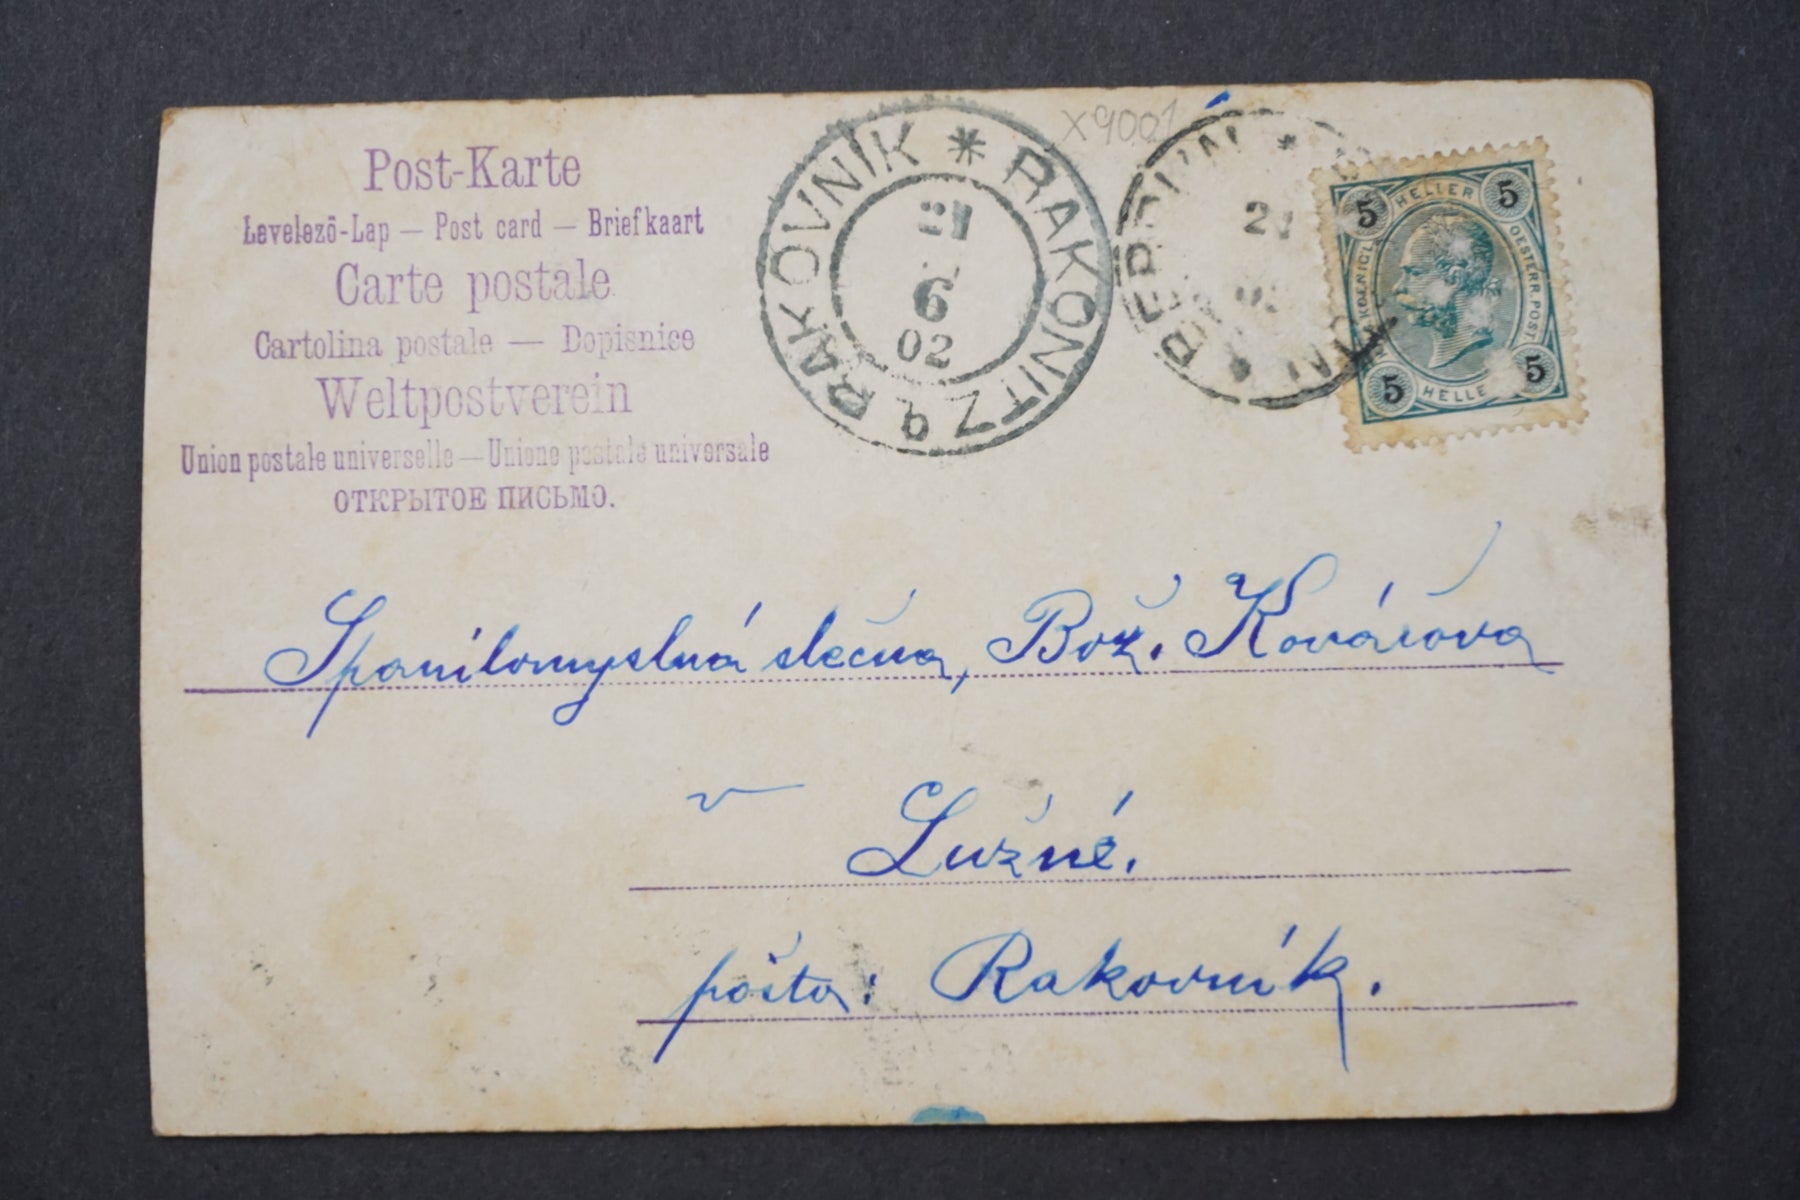 Post-Karte
Levelező-Lap — Post card — Briefkaart
Carte postale
Cartolina postale — Dopisnice
Weltpostverein
Union postale universelle — Unione postale universale
ОТКРЫТОЕ ПИСЬМО.
RAKOVNÍK * RAKONITZ
21
6
02
X9001
21
5 HELLER 5
OESTERR. POST
5 HELLE 5
Spanilomyslná slečna, Bož. Kovářova
v Lužné.
pošta: Rakovník.